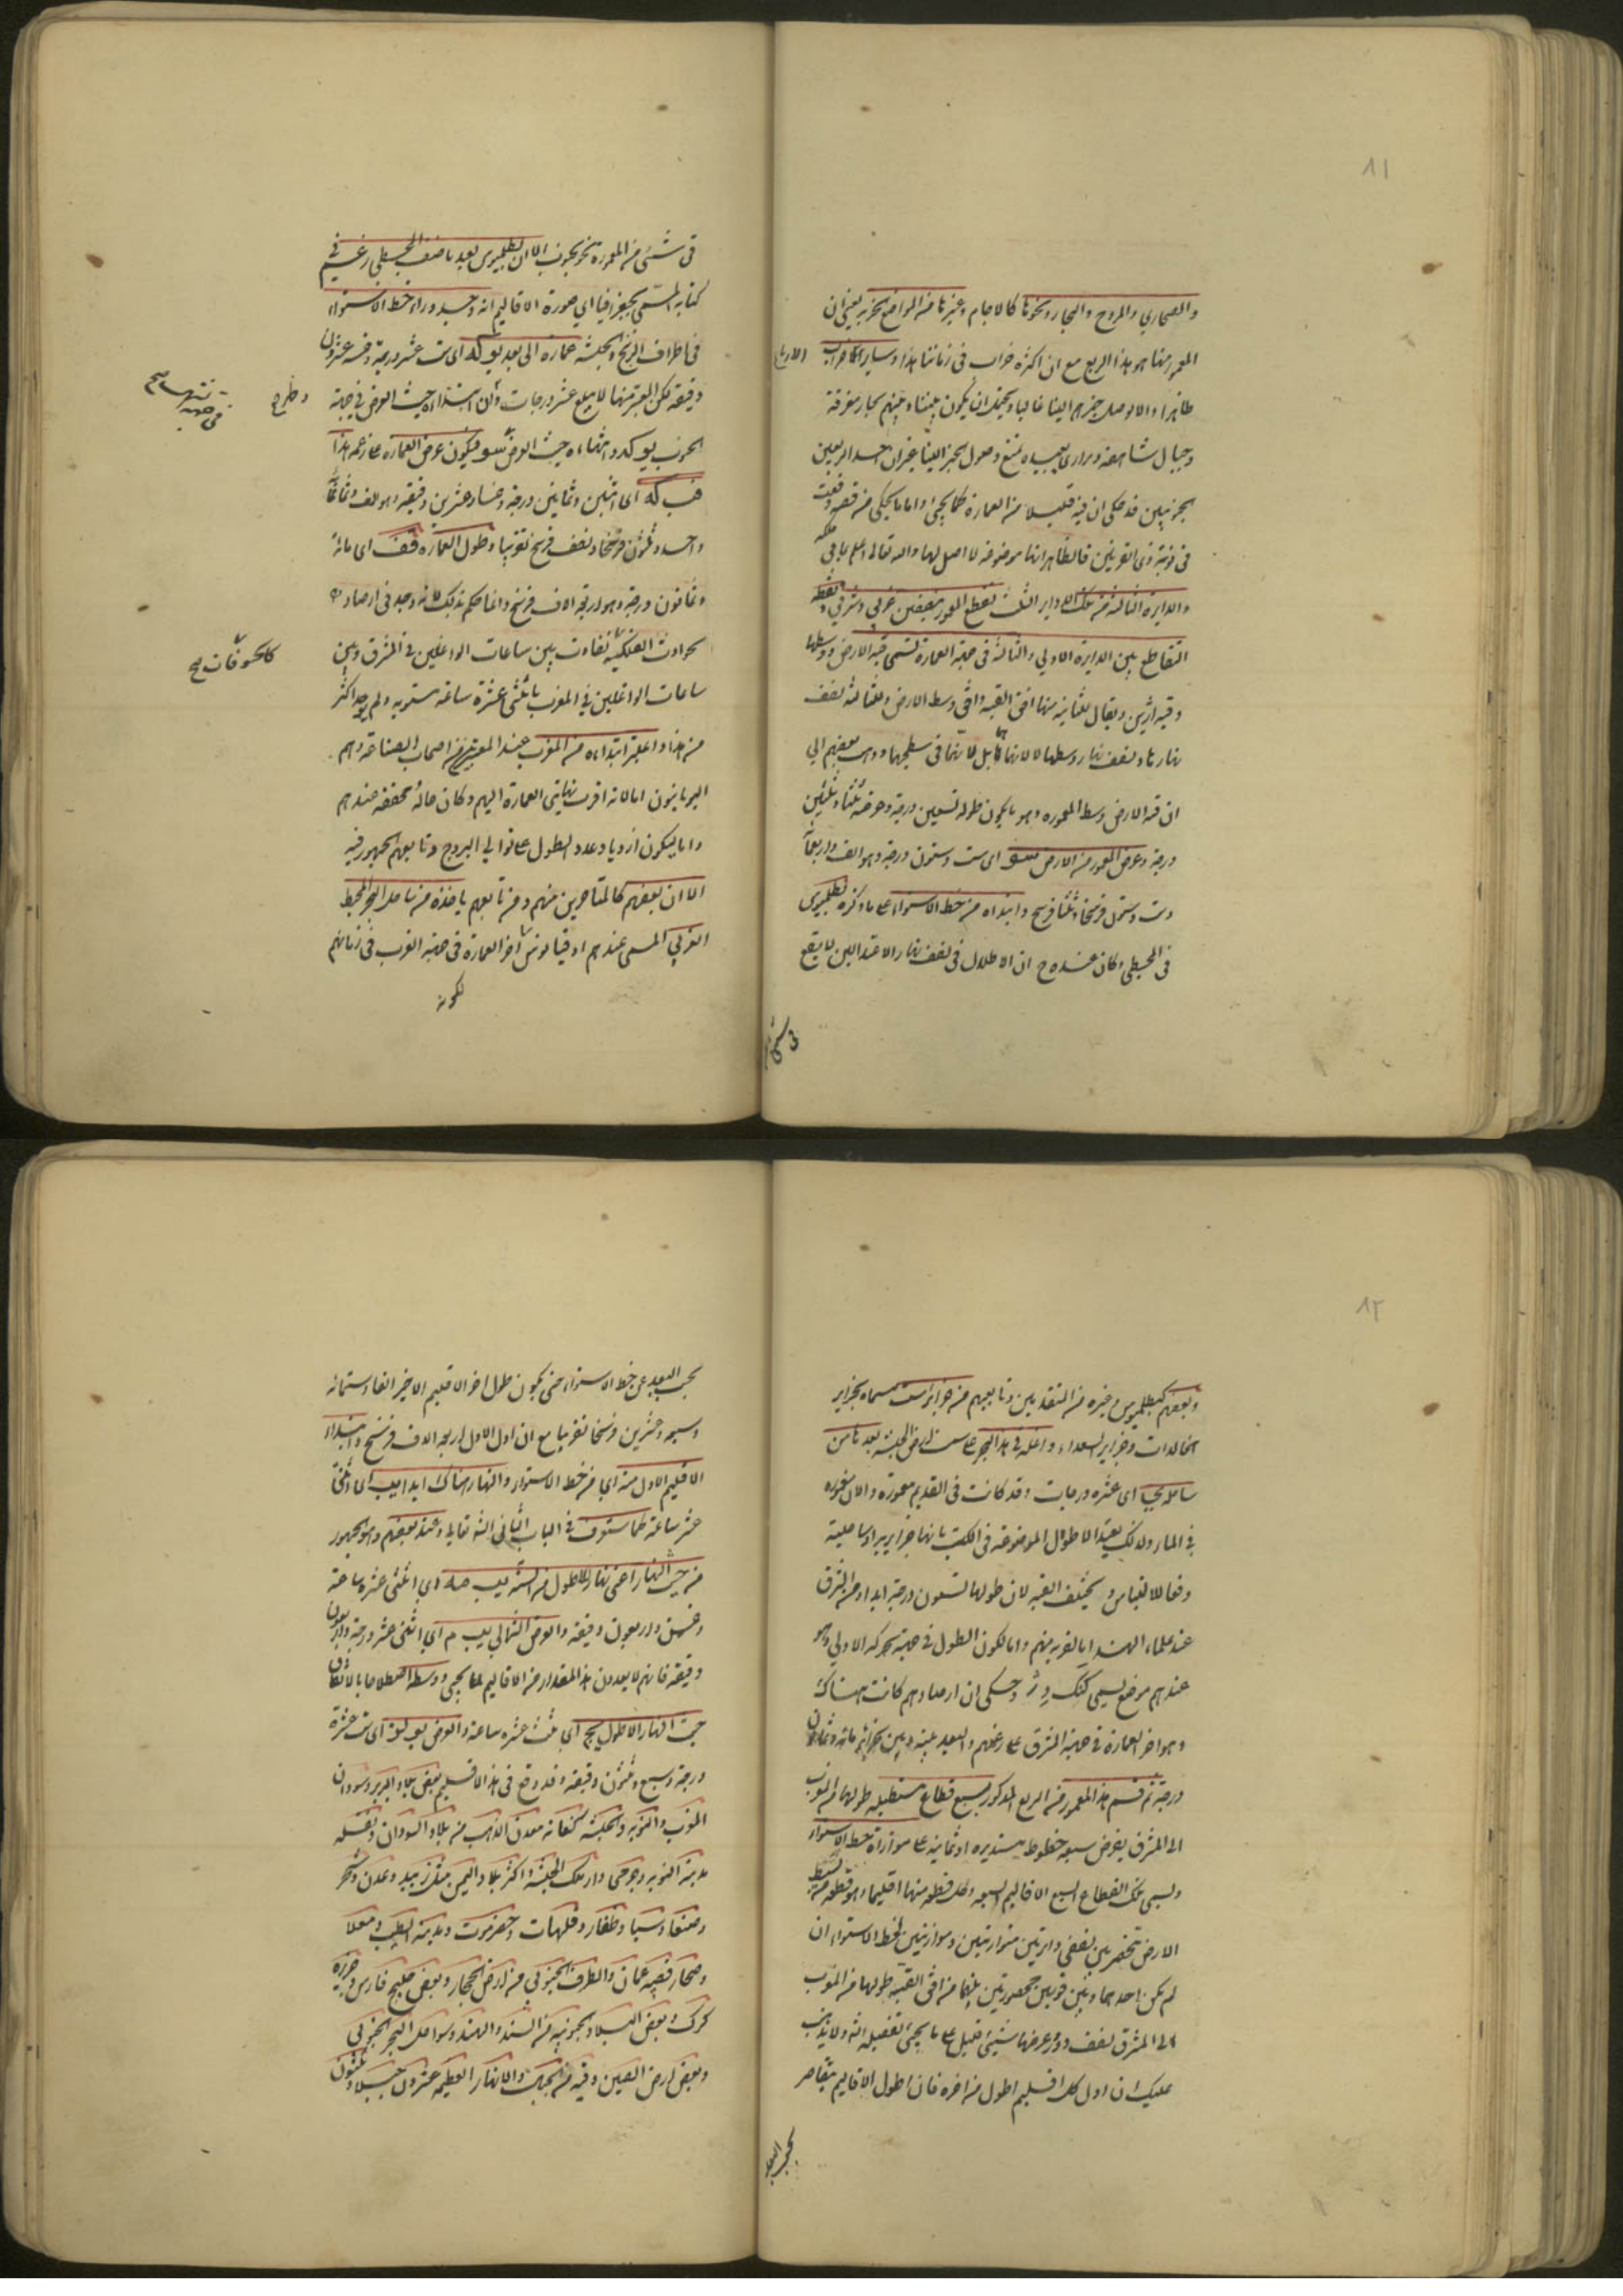 ٨١
والصحاري والمروج والبحار ونحوها كالاجام وغيرها من المواضع الخربة يعنى ان
المعمور منها هو هذا الربع مع ان اكثره خراب فى زماننا هذا وساير الارباع خراب
ظاهرا والا لوصل خبرهم الينا غالبا ويحتمل ان يكون بيننا وبينهم بحار مغرقة
وجبال شاهقة وبرارى بعيدة تمنع وصول الخبر الينا غير ان احد الربعين
الجنوبيين قد حكى ان فيه قليلا من العمارة كما يجئ واما ما يحكى من قصة وقعت
فى نوبة ذى القرنين فالظاهر انها موضوعة لا اصل لها والله تعالى اعلم بما فى ملكه
والدايرة الثالثة من تلك الدواير الثلث تقطع المعمور بنصفين غربي وشرقي ونقطة
التقاطع بين الدايرة الاولي والثالثة فى جهة العمارة تسمى قبة الارض ووسطها
وقبة ارين ويقال للثانية منها افق القبة وافق وسط الارض وللثالثة نصف
نهارها ونصف نهار وسطها لا لانهما بل لانهما فى سطحهما وذهب بعضهم الي
ان قبة الارض وسط المعمورة وهو ما يكون طوله تسعين درجة وعرضه ثلثا وثلثين
درجة وعرض المعمور من الارض سو اى ست وستون درجة وهو الف واربعمائة
وست وستون فرسخا وثلثا فرسخ وابتداه من خط الاستواء على ما ذكره بطلميوس
فى المجسطي وكان عنده ح ان الاظلال فى نصف نهار الاعتدالين لا يقع
فى شئ
فى شئ من المعمورة نحو الجنوب الا ان بطلميوس بعد ما صنف المجسطي زعم في
كتابه المسمى بجغرافيا اي صورة الاقاليم انه وجد وراء خط الاستواء
فى اطراف الزنج والحبشة عمارة الى بعد يو كه اى ست عشر درجة وخمسة عشرون
دقيقة لكن المعتبر منها لا يبلغ عشر درجات ولان ابتداءه حيث العرض في جهة
الجنوب يو كه وانتهاءه حيث العرض سو فيكون عرض العمارة على زعمه هذا
فب كه اى اثنين وثمانين درجة وخمسا وعشرين دقيقة وهو الف وثمانمائة
واحد وثلثون فرسخا ونصف فرسخ تقريبا وطول العمارة قف اى مائة
وثمانون درجة وهو اربعة الاف فرسخ وانما حكم بذلك لانه وجد فى ارصاد
كالخسوفات صح
الحوادث الفلكية تفاوت بين ساعات الواغلين فى المشرق وبين
ساعات الواغلين في المغرب باثنتى عشرة ساعة مستوية ولم يوجد اكثر
من هذا واعلم ان ابتداءه من المغرب عند المعتبرين من اصحاب الصناعة وهم
اليونانيون اما لانه اقرب نهايتى العمارة اليهم وكان حاله محققة عندهم
واما ليكون ازدياد عدد الطول على توالي البروج وتابعهم الجمهور فيه
الا ان بعضهم كالمتاخرين منهم ومن تابعهم ياخذه من ساحل البحر المحيط
الغربي المسمى عندهم اوقيانوس اخر العمارة فى جهة الغرب فى زمانهم
لكونه
٨٢
وبعضهم كبطلميوس وغيره من المتقدمين وتابعيهم من جزائر ست مسماة بجزاير
الخالدات وجزاير السعداء واغلة فى هذا البحر على سمت ارض الحبشة بعدها من
ساحله ي اى عشرة درجات وقد كانت فى القديم معمورة والان مغمورة
في الماء ولذلك يقيد الاطوال الموضوعة فى الكتب بانها جزايرية او ساحلية
دفعا للالتباس ولا يختلف القبة لان طولها تسعون درجة ابدا ومن المشرق
عند علماء الهند اما لقربه منهم واما لكون الطول في جهة الحركة الاولي وهو
عندهم موضع يسمي كنك دز وحكى ان ارصادهم كانت هناك
وهو اخر العمارة فى جهة المشرق على زعمهم والبعد بينه وبين الجزاير مائة وثمانون
درجة ثم قسم هذا المعمور من الربع المذكور بسبع قطاع مستطيلة طولها من المغرب
الى المشرق بفرض سبعة خطوط مستديرة او ثمانية على موازاة خط الاستواء
ويسمي تلك القطاع السبع الاقاليم السبعة وكل قطعة منها اقليما وهو قطعة من بسيط
الارض تنحصر بين نصفي دايرتين متوازيتين وموازيتين لخط الاستواء ان
لم يكن احدهما وبين قوسين محصورتين بينهما من افق القبة طولها من المغرب
الى المشرق نصف دور وعرضها شيئ قليل على ما يجئ تفصيله انه ولا يذهب
عليك ان اول كل اقليم اطول من اخره فان اطول الاقاليم يتقاصر
بحسب البعد
بحسب البعد عن خط الاستواء حتى يكون طول اخر الاقليم الاخير الفا وستمائة
وسبعة وعشرين فرسخا تقريبا مع ان اول الاول اربعة الاف فرسخ وابتداء
الاقليم الاول منه اي من خط الاستواء والنهار هناك ابدا يب اى اثنتا
عشر ساعة كما ستعرف في الباب الثانى انشه تعالي وعند بعضهم وهو الجمهور
من حيث النهار اعنى نهاره الاطول من السنة يب مه اي اثنتى عشرة ساعة
وخمس واربعون دقيقة والعرض الشمالي يب م اي اثنتى عشر درجة واربعون
دقيقة فانهم لا يعدون هذا المقدار من الاقاليم لما يجئ ووسطه اصطلاحا بالاتفاق
حيث النهار الاطول يج اي ثلث عشرة ساعة والعرض يو لز اى ست عشرة
درجة وسبع وثلثون دقيقة وقد وقع فى هذا الاقليم بعض بلاد البربر وسودان
المغرب والنوبة والحبشة كغانة معدن الذهب من بلاد السودان ودنقلة
مدينة النوبة وجرمى دار ملك الحبشة واكثر بلاد اليمن مثل زبيد وعدن وشحر
وصنعا وسبا وظفار وقلهات وحضرموت ومدينة الطيب ومعلا
وصحار قصبة عمان والطرف الجنوبي من ارض الحجاز وبعض خليج فارس وجزيرة
كرك وبعض البلاد الجنوبية من السند والهند وسواحل البحر الجنوبي
وبعض ارض الصين وفيه من الجبال والانهار العظيمة عشرون جبلا وثلثون